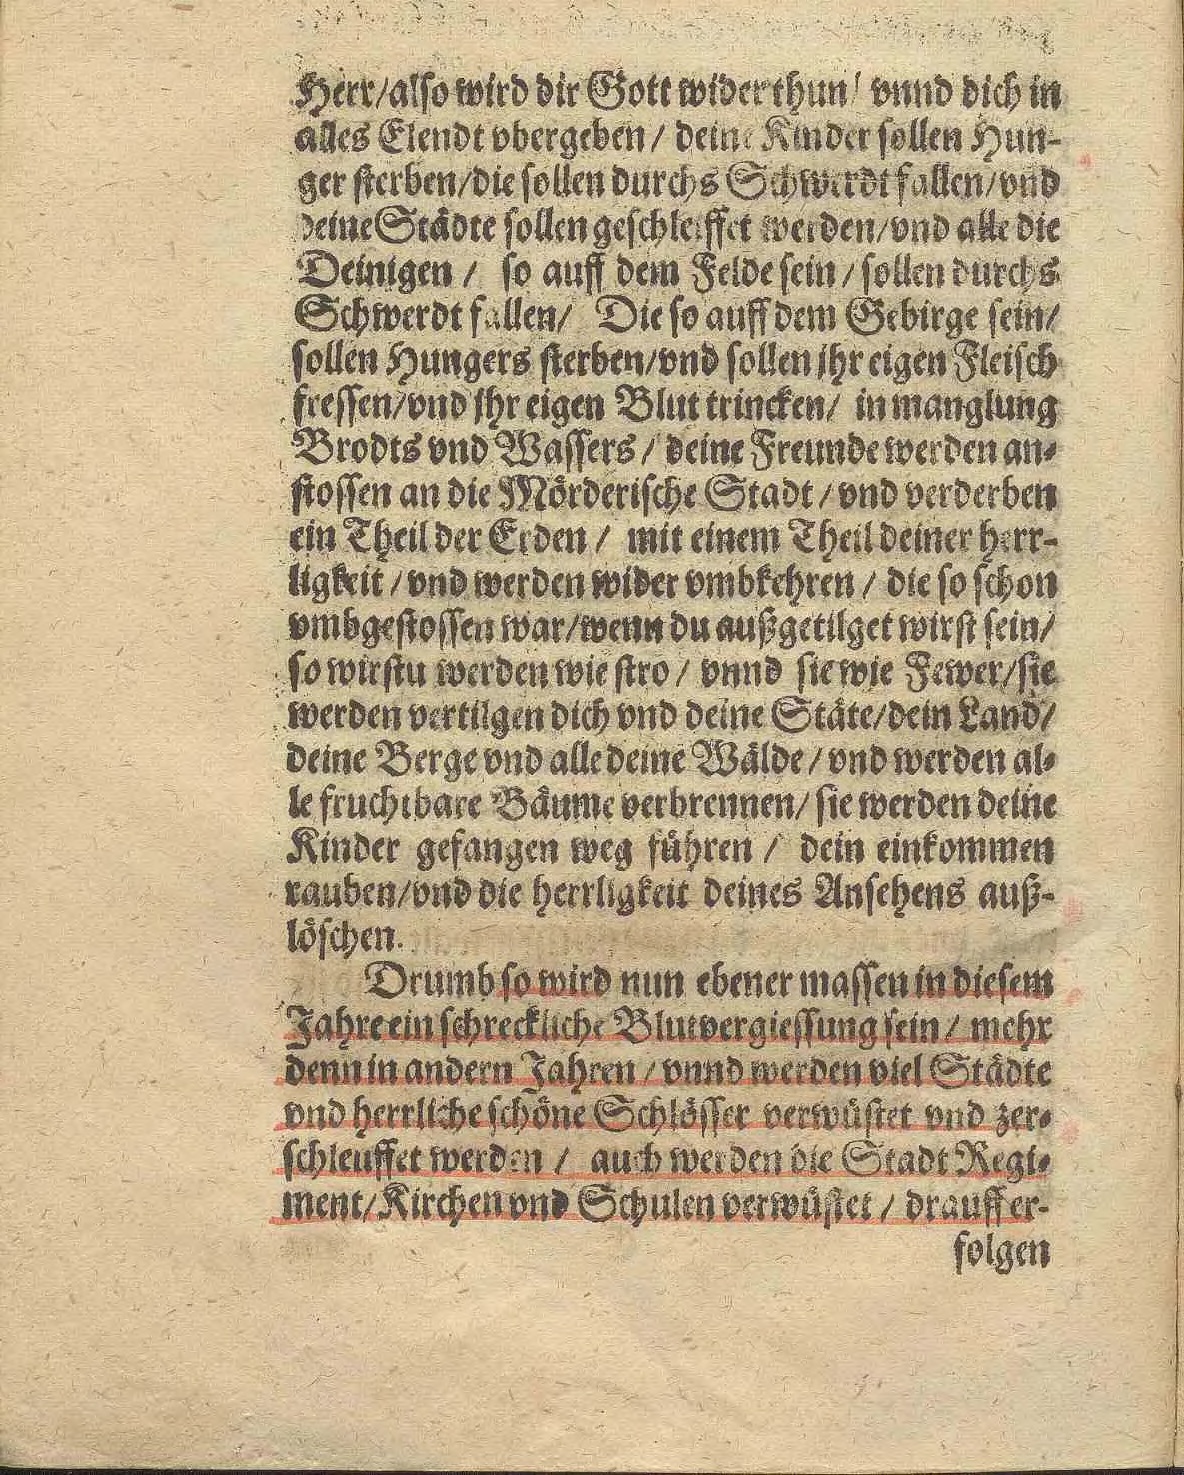 Herr/also wird dir Gott wider thun/ vnnd dich in
alles Elendt vbergeben/ deine Kinder sollen Hun-
ger sterben/die sollen durchs Schwerdt fallen/vnd
deine Städte sollen geschleiffet werden/vnd alle die
Deinigen / so auff dem Felde sein/sollen durchs
Schwerdt fallen/ Die so auff dem Gebirge sein/
sollen Hungers sterben/vnd sollen jhr eigen Fleisch
fressen/vnd jhr eigen Blut trincken/ in manglung
Brodts vnd Wassers/ deine Freunde werden an-
stossen an die Mörderische Stadt/vnd verderben
ein Theil der Erden/ mit einem Theil deiner herr-
ligkeit/vnd werden wider vmbkehren/ die so schon
vmbgestossen war/wenn du außgetilget wirst sein/
so wirstu werden wie stro/ vnnd sie wie Fewer/sie
werden vertilgen dich vnd deine Stäte/dein Land/
deine Berge vnd alle deine Wälde/vnd werden al-
le fruchtbare Bäume verbrennen/ sie werden deine
Kinder gefangen weg führen/ dein einkommen
rauben/vnd die herrligkeit deines Ansehens auß-
löschen.
Drumb so wird nun ebener massen in diesem
Jahre ein schreckliche Blutvergiessung sein/ mehr
denn in andern Jahren/vnnd werden viel Städte
vnd herrliche schöne Schlösser verwüstet vnd zer-
schleuffet werden / auch werden die Stadt Regi-
ment/Kirchen vnd Schulen verwüstet/ drauff er-
folgen